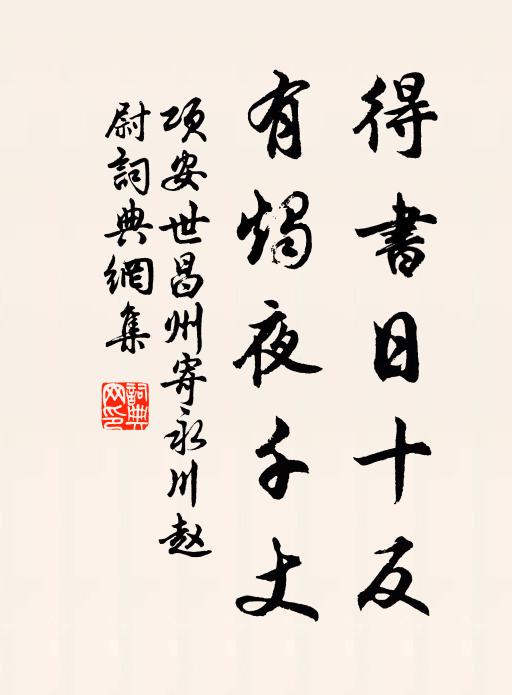 得書日十反
有燭夜千丈
項安世昌州寄永川赵
尉詞典網集
詞典網印